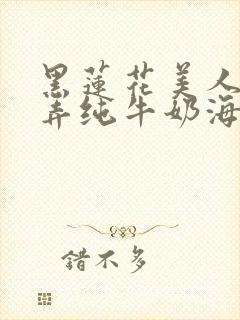 黑蓮花美人
弄纯牛奶海
錯不多